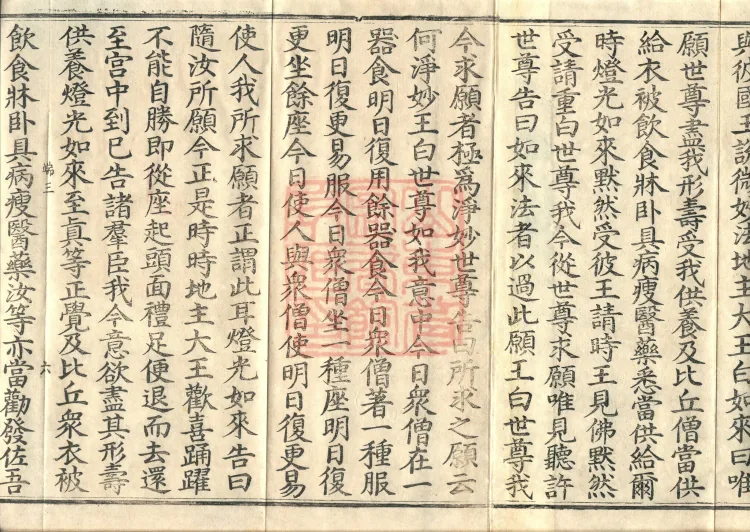 與彼國王說微妙法地主大王白如來曰唯
願世尊盡我形壽受我供養及比丘僧當供
給衣被飲食牀卧具病瘦醫藥悉當供給爾
時燈光如來默然受彼王請時王見佛默然
受請重白世尊我今從世尊求願唯見聽許
世尊告曰如來法者以過此願王白世尊我
今求願者極為淨妙世尊告曰所求之願云
何淨妙王白世尊如我意中今日衆僧在一
器食明日復用餘器食今日衆僧著一種服
明日復更易服今日衆僧坐一種座明日復
更坐餘座今日使人與衆僧使明日復更易
使人我所求願者正謂此耳燈光如來告曰
隨汝所願今正是時時地主大王歡喜踊躍
不能自勝即從座起頭面禮足便退而去還
至宮中到已告諸羣臣我今意欲盡其形壽
供養燈光如來至真等正覺及比丘衆衣被
三 六
飲食牀卧具病瘦醫藥汝等亦當勸發佐吾